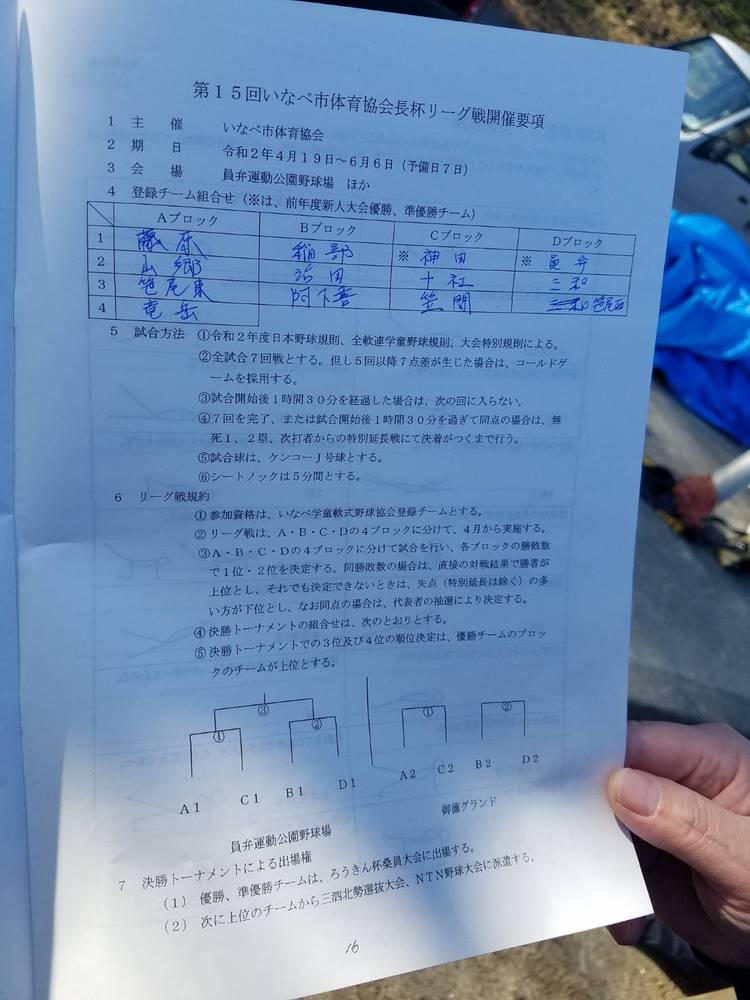 第15回いなべ市体育協会長杯リーグ戦開催要項
1 主 催 いなべ市体育協会
2 期 日 令和2年4月19日～6月6日（予備日7日）
3 会 場 員弁運動公園野球場 ほか
4 登録チーム組合せ（※は、前年度新人大会優勝、準優勝チーム）
Aブロック Bブロック Cブロック Dブロック
1 藤原 稲部 ※ 神田 ※ 員弁
2 山郷 治田 十社 三和
3 笹尾東 阿下喜 笠間 三和 笹尾西
4 竜岳
5 試合方法 ①令和2年度日本野球規則、全軟連学童野球規則、大会特別規則による。
②全試合7回戦とする。但し5回以降7点差が生じた場合は、コールドゲ
ームを採用する。
③試合開始後1時間30分を経過した場合は、次の回に入らない。
④7回を完了、または試合開始後1時間30分を過ぎて同点の場合は、無
死1、2塁、次打者からの特別延長戦にて決着がつくまで行う。
⑤試合球は、ケンコーJ号球とする。
⑥シートノックは5分間とする。
6 リーグ戦規約
①参加資格は、いなべ学童軟式野球協会登録チームとする。
②リーグ戦は、A・B・C・Dの4ブロックに分けて、4月から実施する。
③A・B・C・Dの4ブロックに分けて試合を行い、各ブロックの勝敗数
で1位・2位を決定する。同勝敗数の場合は、直接の対戦結果で勝者が
上位とし、それでも決定できないときは、失点（特別延長は除く）の多
い方が下位とし、なお同点の場合は、代表者の抽選により決定する。
④決勝トーナメントの組合せは、次のとおりとする。
⑤決勝トーナメントでの3位及び4位の順位決定は、優勝チームのブロッ
クのチームが上位とする。
③
① ② ① ②
A1 C1 B1 D1 A2 C2 B2 D2
員弁運動公園野球場 御薗グランド
7 決勝トーナメントによる出場権
（1） 優勝、準優勝チームは、ろうきん杯桑員大会に出場する。
（2） 次に上位のチームから三泗北勢選抜大会、NTN野球大会に派遣する。
16